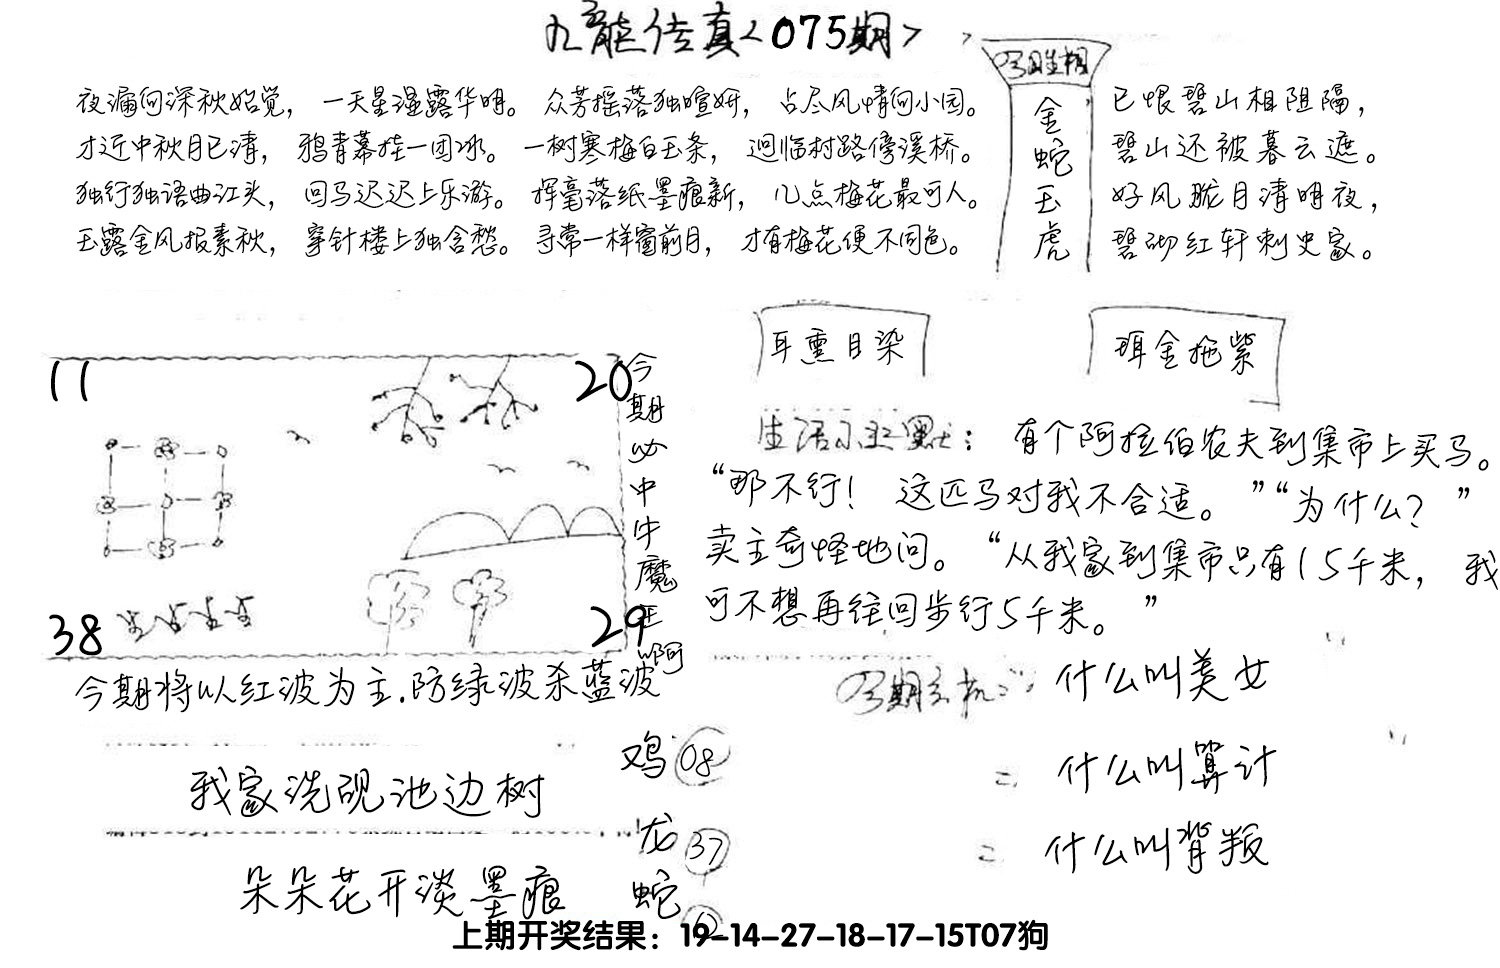 九龙传真<075期>
夜漏何深秋始觉，一天星湿露华明。众芳摇落独喧妍，占尽风情向小园。
才近中秋月已清，鸦青幕挂一团冰。一树寒梅白玉条，迥临村路傍溪桥。
独行独语曲江头，回马迟迟上乐游。挥毫落纸墨痕新，几点梅花最可人。
玉露金风报素秋，穿针楼上独含愁。寻常一样窗前月，才有梅花便不同色。
金蛇玉虎
已恨碧山相阻隔，
碧山还被暮云遮。
好风胧月清明夜，
碧砌红轩刺史家。
11
20
38
29
今期必中牛魔王啊
今期将以红波为主.防绿波杀蓝波
耳熏目染
珥金拖紫
生活小幽默：有个阿拉伯农夫到集市上买马。
“那不行！这匹马对我不合适。”“为什么？”
卖主奇怪地问。“从我家到集市只有15千米，我
可不想再往回步行5千米。”
今期玄机一：什么叫美女
二 什么叫算计
二 什么叫背叛
我家洗砚池边树
朵朵花开淡墨痕
鸡 08
龙 37
蛇
上期开奖结果：19-14-27-18-17-15T07狗